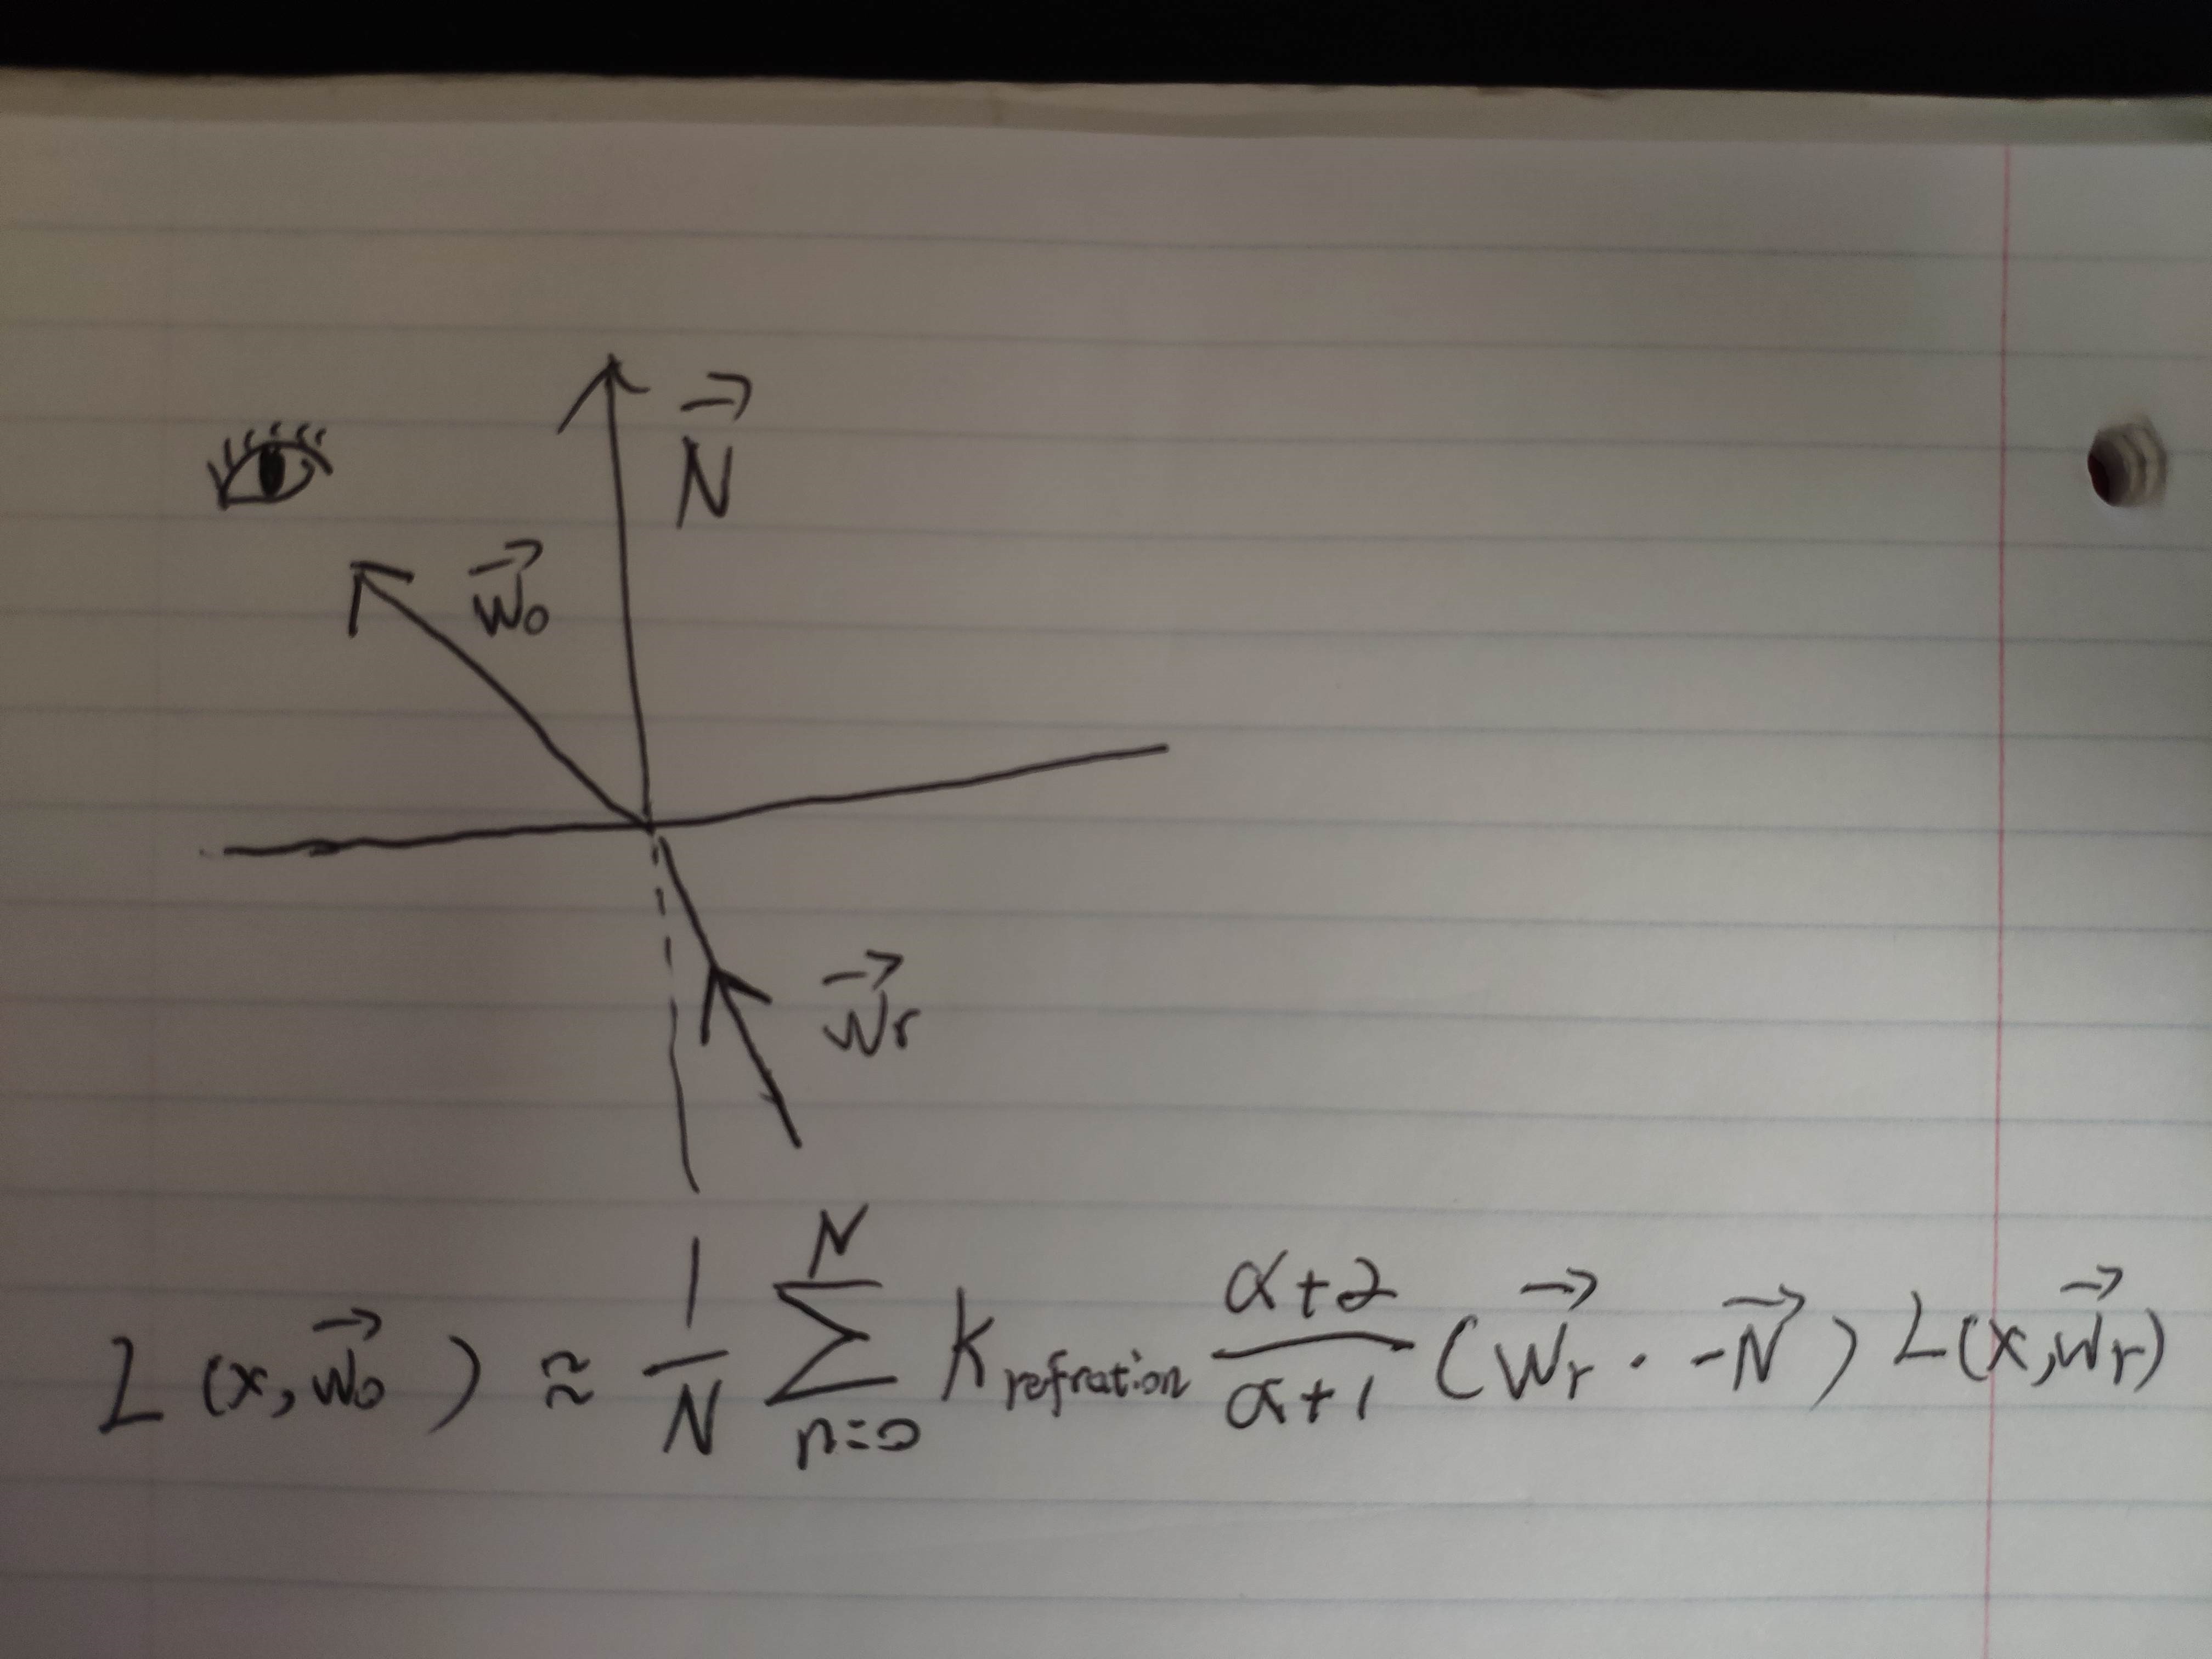 N⃗
w⃗o
w⃗r
L(x, w⃗o) ≈ 1/N ∑_{n=0}^{N} k_{refration} (α+2)/(α+1) (w⃗r · -N⃗) L(x, w⃗r)